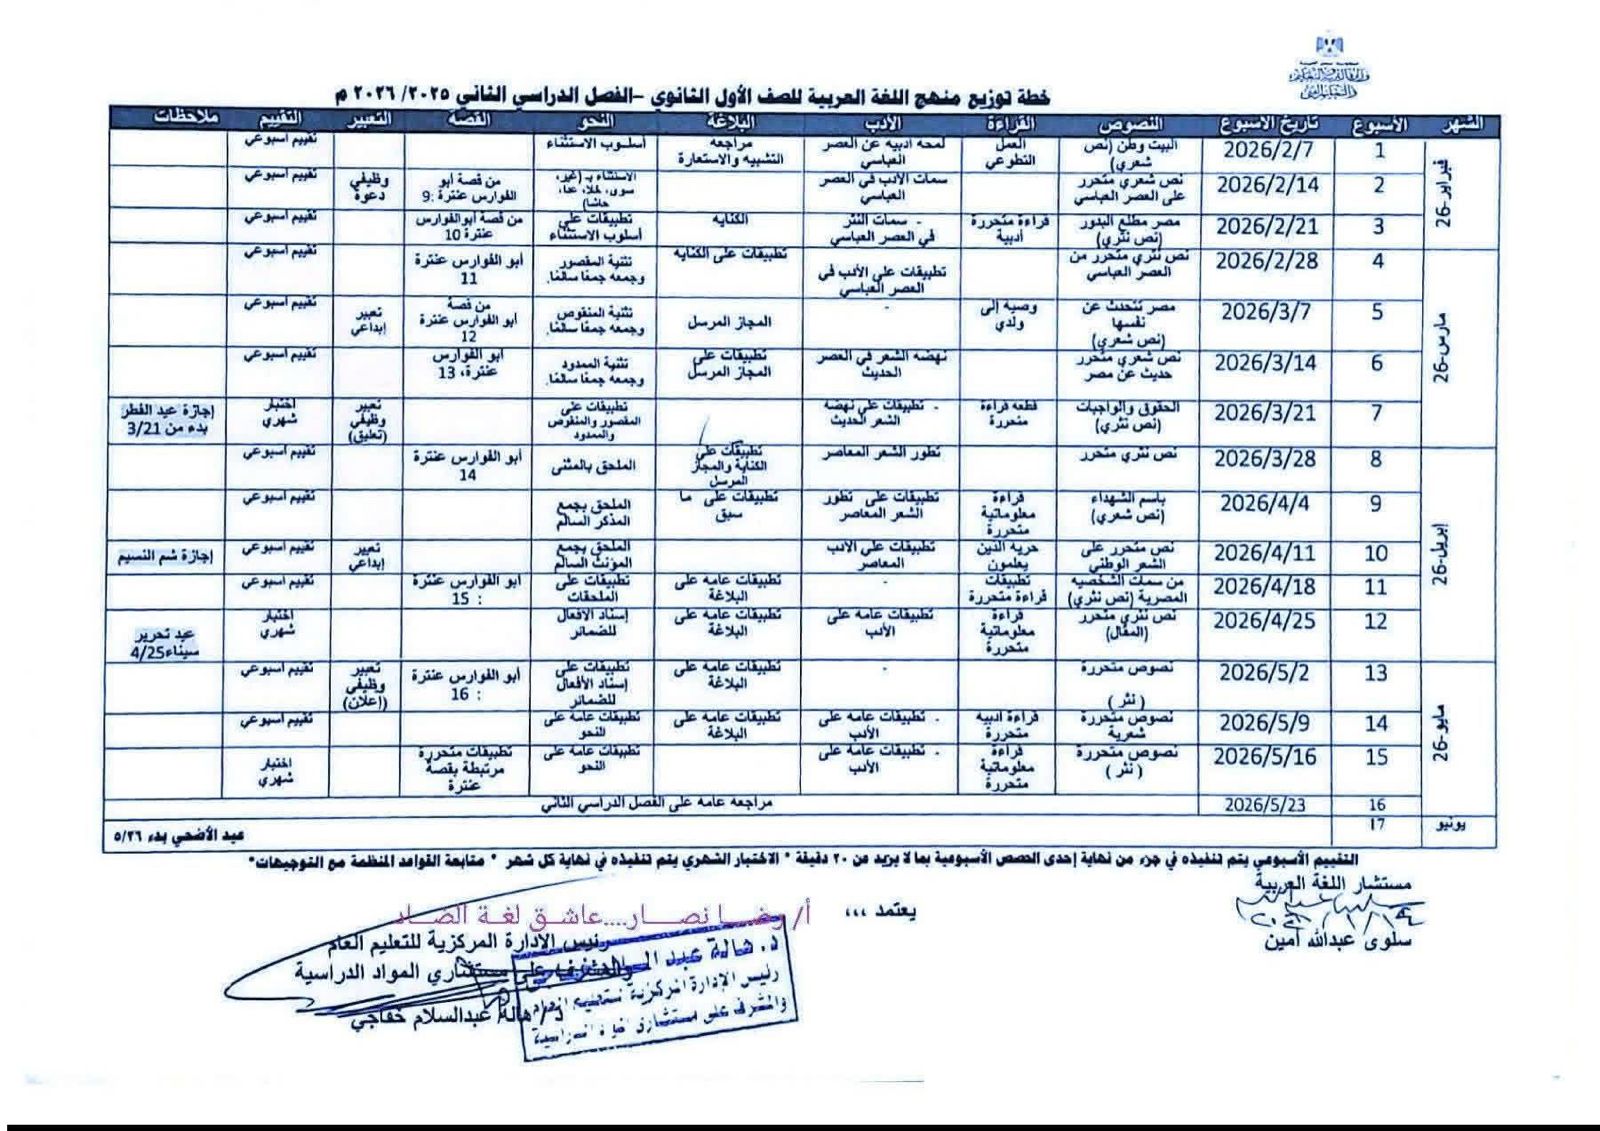 خطة توزيع منهج اللغة العربية للصف الأول الثانوي –الفصل الدراسي الثاني ٢٠٢٥/ ٢٠٢٦ م
الشهر الأسبوع تاريخ الأسبوع النصوص القراءة الأدب البلاغة النحو القصة التعبير التقييم ملاحظات
فبراير-26
1 2026/2/7 البيت وطن (نص شعري) العمل التطوعي لمحه ادبيه عن العصر العباسي مراجعه التشبيه والاستعارة أسلوب الاستثناء تقييم اسبوعي
2 2026/2/14 نص شعري متحرر على العصر العباسي سمات الأدب في العصر العباسي الاستثناء بـ (غير، سوى، خلا، عدا، حاشا) من قصة أبو الفوارس عنترة :9 وظيفي دعوة تقييم أسبوعي
3 2026/2/21 مصر مطلع البدور (نص نثري) قراءة متحررة أدبية - سمات النثر في العصر العباسي الكنايه تطبيقات على أسلوب الاستثناء من قصة ابوالفوارس عنترة 10 تقييم أسبوعي
مارس-26
4 2026/2/28 نص نثري متحرر من العصر العباسي تطبيقات على الأدب في العصر العباسي تطبيقات على الكنايه تثنية المقصور وجمعه جمعًا سالمًا. أبو الفوارس عنترة 11 تقييم أسبوعي
5 2026/3/7 مصر تتحدث عن نفسها (نص شعري) وصية إلى ولدي - المجاز المرسل تثنية المنقوص وجمعه جمعًا سالمًا. من قصة أبو الفوارس عنترة 12 تعبير إبداعي تقييم أسبوعي
6 2026/3/14 نص شعري متحرر حديث عن مصر نهضه الشعر في العصر الحديث تطبيقات على المجاز المرسل تثنية الممدود وجمعه جمعًا سالمًا. ابو الفوارس عنترة، 13 تقييم أسبوعي
7 2026/3/21 الحقوق والواجبات (نص نثري) قطعه قراءة متحررة - تطبيقات على نهضه الشعر الحديث تطبيقات على المقصور والمنقوص والممدود تعبير وظيفي (تعليق) اختبار شهري إجازة عيد الفطر بدء من 3/21
ابريل-26
8 2026/3/28 نص نثري متحرر تطور الشعر المعاصر تطبيقات على الكناية والمجاز المرسل الملحق بالمثنى أبو الفوارس عنترة 14 تقييم أسبوعي
9 2026/4/4 باسم الشهداء (نص شعري) قراءة معلوماتية متحررة تطبيقات على تطور الشعر المعاصر تطبيقات على ما سبق الملحق بجمع المذكر السالم تقييم أسبوعي
10 2026/4/11 نص متحرر على الشعر الوطني حرية الذين يعلمون تطبيقات على الأدب المعاصر الملحق بجمع المؤنث السالم تعبير إبداعي تقييم اسبوعي إجازة شم النسيم
11 2026/4/18 من سمات الشخصيه المصرية (نص نثري) تطبيقات قراءة متحررة - تطبيقات عامه على البلاغة تطبيقات على الملحقات ابو الفوارس عنترة : 15 تقييم اسبوعي
12 2026/4/25 نص نثري متحرر (المقال) قراءة معلوماتية متحررة تطبيقات عامه على الأدب تطبيقات عامه على البلاغة إسناد الأفعال للضمائر اختبار شهري عيد تحرير سيناء4/25
مايو-26
13 2026/5/2 نصوص متحررة ( نثر ) - تطبيقات عامه على البلاغة تطبيقات على إسناد الأفعال للضمائر أبو الفوارس عنترة : 16 تعبير وظيفي (إعلان) تقييم اسبوعي
14 2026/5/9 نصوص متحررة شعرية قراءة ادبيه متحررة - تطبيقات عامه على الأدب تطبيقات عامه على البلاغة تطبيقات عامه على النحو تقييم اسبوعي
15 2026/5/16 نصوص متحررة ( نثر ) قراءة معلوماتية متحررة - تطبيقات عامه على الأدب تطبيقات عامه على النحو تطبيقات متحررة مرتبطة بقصة عنترة اختبار شهري
16 2026/5/23 مراجعه عامه على الفصل الدراسي الثاني
يونيو 17 عيد الأضحي بدء ٥/٢٦
التقييم الأسبوعي يتم تنفيذه في جزء من نهاية إحدى الحصص الأسبوعية بما لا يزيد عن ٢٠ دقيقة * الاختبار الشهري يتم تنفيذه في نهاية كل شهر * متابعة القواعد المنظمة مع التوجيهات*
مستشار اللغة العربية
سلوى عبدالله أمين
يعتمد ،،،
أ/ رضا نصار....عاشق لغة الضاد
رئيس الإدارة المركزية للتعليم العام
والمشرف على مستشاري المواد الدراسية
د/ هالة عبدالسلام خفاجي
د. هالة عبد
رئيس الإدارة المركزية للتعليم العام
والمشرف على مستشاري المواد الدراسية